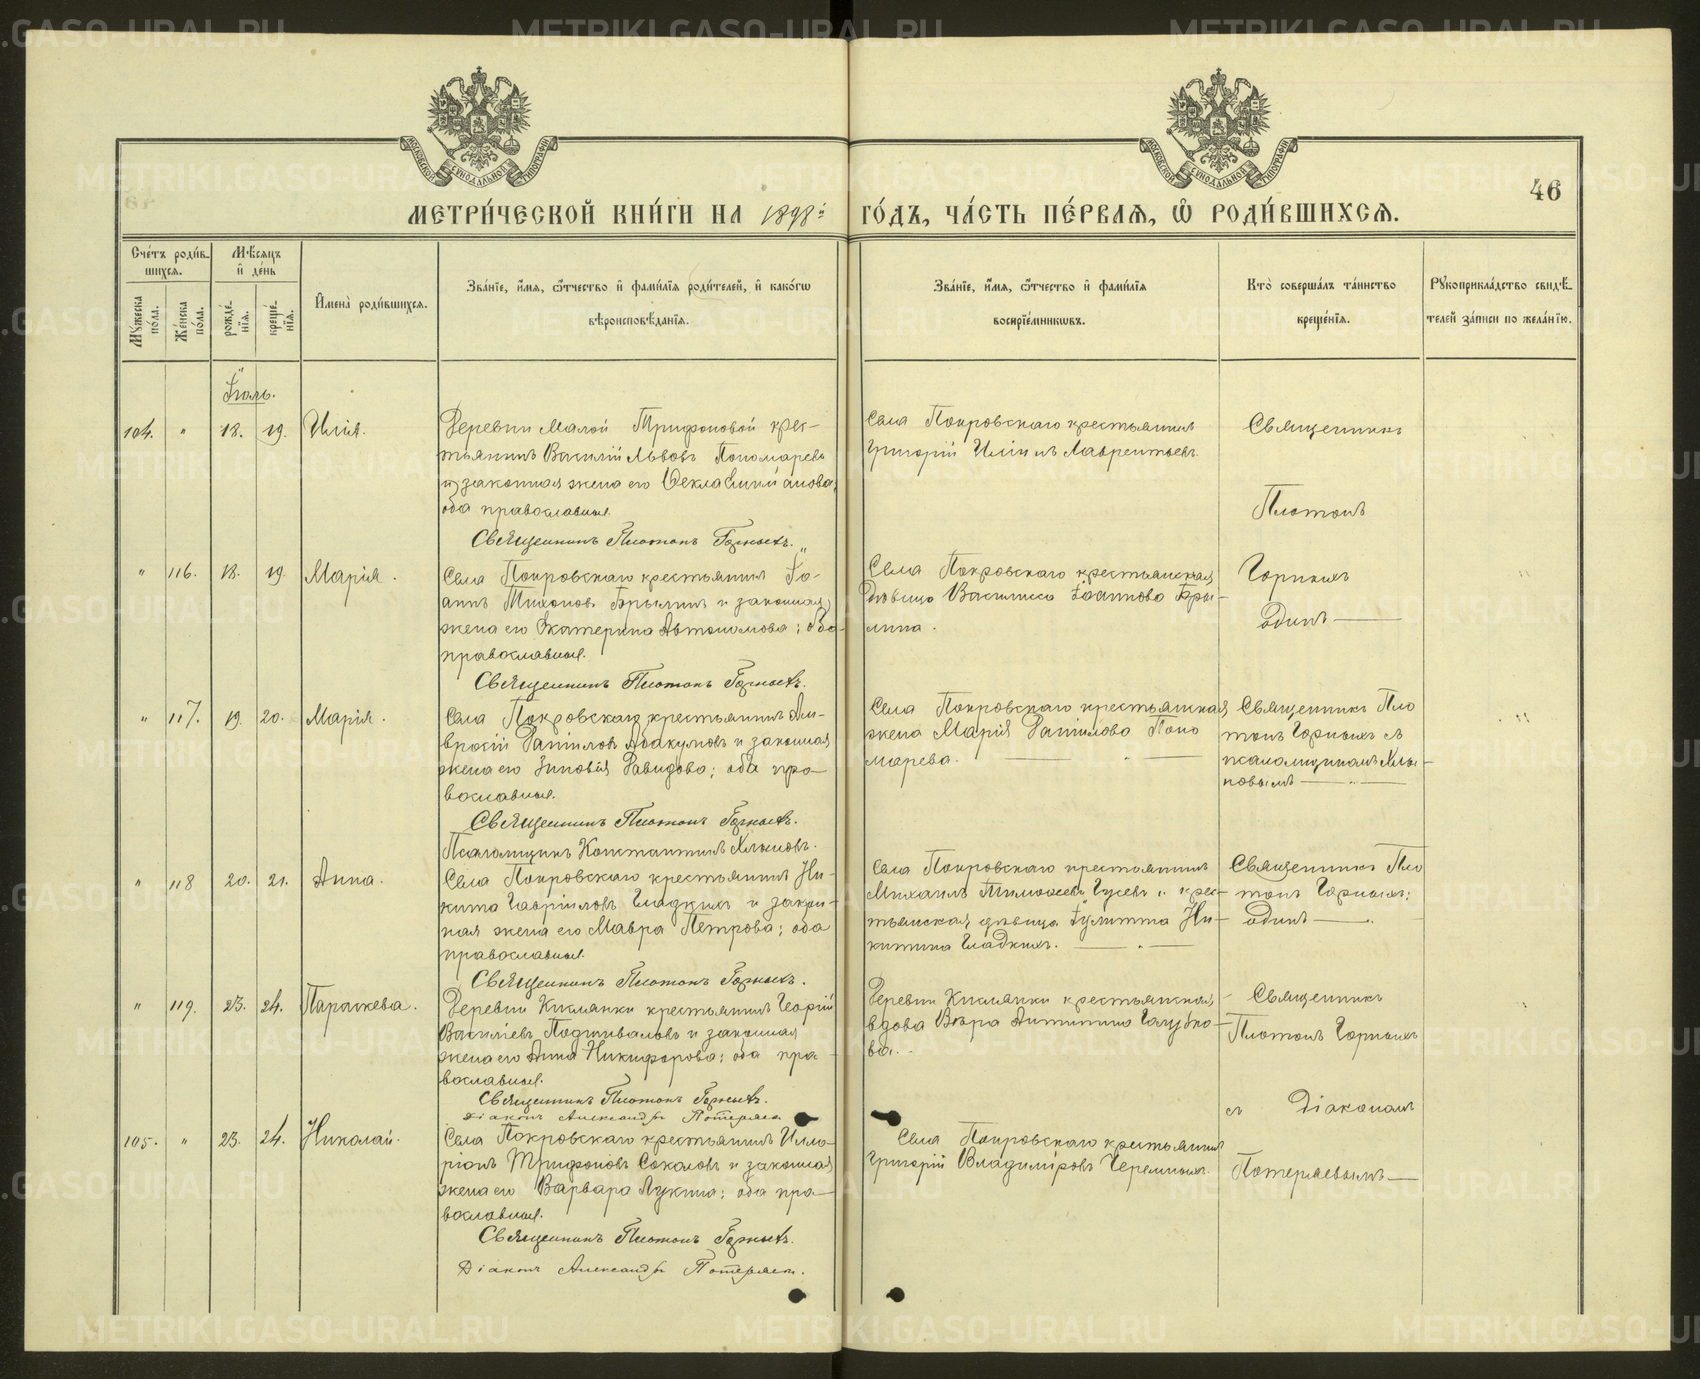 METRIKI.GASO-URAL.RU
МОСКОВСКОЙ СѴНОДАЛЬНОЙ ТИПОГРАФІИ
МОСКОВСКОЙ СѴНОДАЛЬНОЙ ТИПОГРАФІИ
46
МЕТРИ́ЧЕСКОЙ КНИ́ГИ НА 1898й ГО́ДЪ, ЧА́СТЬ ПЕ́РВАѦ, Ѽ РОДИ́ВШИХСѦ.
Сче́тъ роди́в-
шихсѧ.
Мѣ́сѧцъ
и҆ де́нь
Мꙋ́жеска
по́ла.
Же́нска
по́ла.
рожде́-
нїѧ.
креще́-
нїѧ.
И҆мена̀ роди́вшихсѧ.
Зва́нїе, и҆́мѧ, ѻ҆́тчество и҆ фами́лїѧ роди́телей, и҆ како́гѡ
вѣроисповѣ́данїѧ.
Зва́нїе, и҆́мѧ, ѻ҆́тчество и҆ фами́лїѧ
воспрїе́мникѡвъ.
Кто̀ соверша́лъ та́инство
креще́нїѧ.
Рꙋкоприкла́дство свидѣ́-
телей за́писи по жела́нїю.
Іюль.
104. " 18. 19. Илія.
Деревни Малой Трифоновой крес-
тьянинъ Василій Львовъ Пономаревъ
и законная жена его Ѳекла
оба православные.
Священникъ Платонъ Горныхъ.
Села Покровскаго крестьянинъ
Григорій Иліинъ Лаврентьевъ.
Священникъ
Платонъ
Горныхъ
одинъ
" 116. 18. 19. Марія.
Села Покровскаго крестьянинъ Іо-
аннъ Тихоновъ Брылинъ и законная
жена его Екатерина Автономова; оба
православные.
Священникъ Платонъ Горныхъ.
Села Покровскаго крестьянская
дѣвица Василисса Іоаннова Бры-
лина.
" 117. 19. 20. Марія.
Села Покровскаго крестьянинъ Ам-
вросій Даніиловъ Абакумовъ и законная
жена его Зиновія Давидова; оба пра-
вославные.
Священникъ Платонъ Горныхъ.
Псаломщикъ Константинъ Хлыновъ.
Села Покровскаго крестьянская
жена Марія Даніилова Поно
марева.
Священникъ Пла
тонъ Горныхъ съ
псаломщикомъ Хлы-
новымъ
" 118 20. 21. Анна.
Села Покровскаго крестьянинъ Ни-
кита Гавріиловъ Гладкихъ и закон-
ная жена его Мавра Петрова; оба
православные.
Священникъ Платонъ Горныхъ.
Села Покровскаго крестьянинъ
Михаилъ Тимоѳеевъ Гусевъ и крес-
тьянская дѣвица Іулитта Ни-
китина Гладкихъ.
Священникъ Пла
тонъ Горныхъ;
одинъ
" 119. 23. 24. Параскева.
Деревни Кислянки крестьянинъ Георгій
Василіевъ Подкиваловъ и законная
жена его Анна Никифорова; оба пра-
вославные.
Священникъ Платонъ Горныхъ.
Діаконъ Александръ Потеряевъ
Деревни Кислянки крестьянская
вдова Вѣра Антипина Голубко-
ва.
Священникъ
Платонъ Горныхъ
съ Діакономъ
Потеряевымъ
105. " 23. 24. Николай.
Села Покровскаго крестьянинъ Илла-
ріонъ Трифоновъ Соколовъ и законная
жена его Варвара Лукина; оба пра-
вославные.
Священникъ Платонъ Горныхъ.
Діаконъ Александръ Потеряевъ.
Села Покровскаго крестьянинъ
Григорій Владиміровъ Черемныхъ.